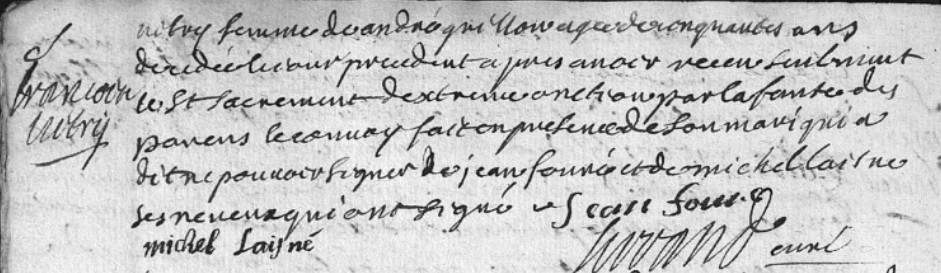 S
francoise
Autry
Autry femme de andré quillow agee de cinquantes ans
decedé le jour precedent apres avoir receu seulment
le St sacrement dextreme onction par la faute des
parens le convoy fait en presence de son mari qui a
dit ne pouvoir signer de jean fouré et de michel laisne
ses neveux qui ont signé Jean fouré
michel Laisné curé